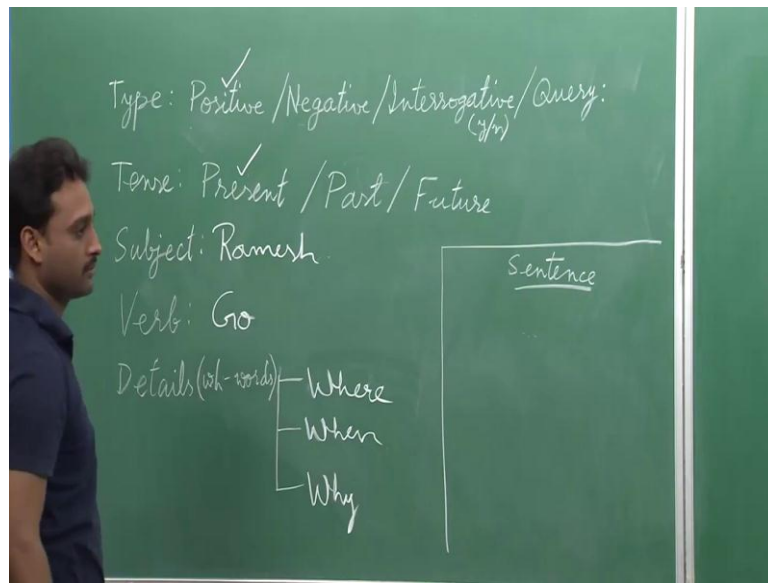 Type: Positive / Negative / Interrogative / Query:
(y/n)
Tense: Present / Past / Future
Subject: Ramesh
Sentence
Verb: Go
Details (wh-words)
Where
When
Why